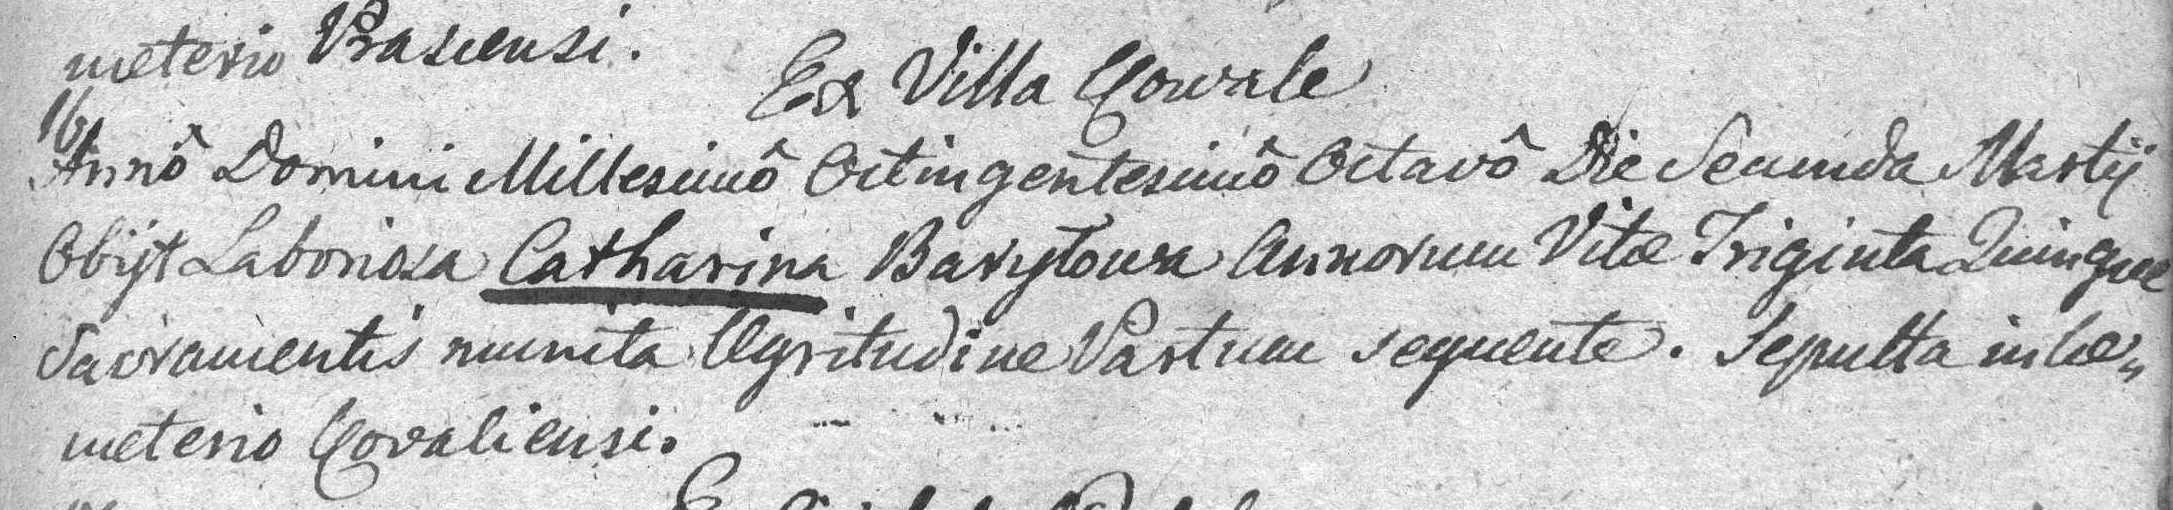 meterio Prasuensi.
Ex Villa Cowale
16
Annô Domini Millesimô Octingentesimô Octavô Die Secunda Martij
Obijt Laboriosa Catharina Barylowa Annorum Vitæ Triginta Quinque
Sacramentis munita Ægritudine Partum sequente. Sepulta in Cæ„
meterio Covaliensi.